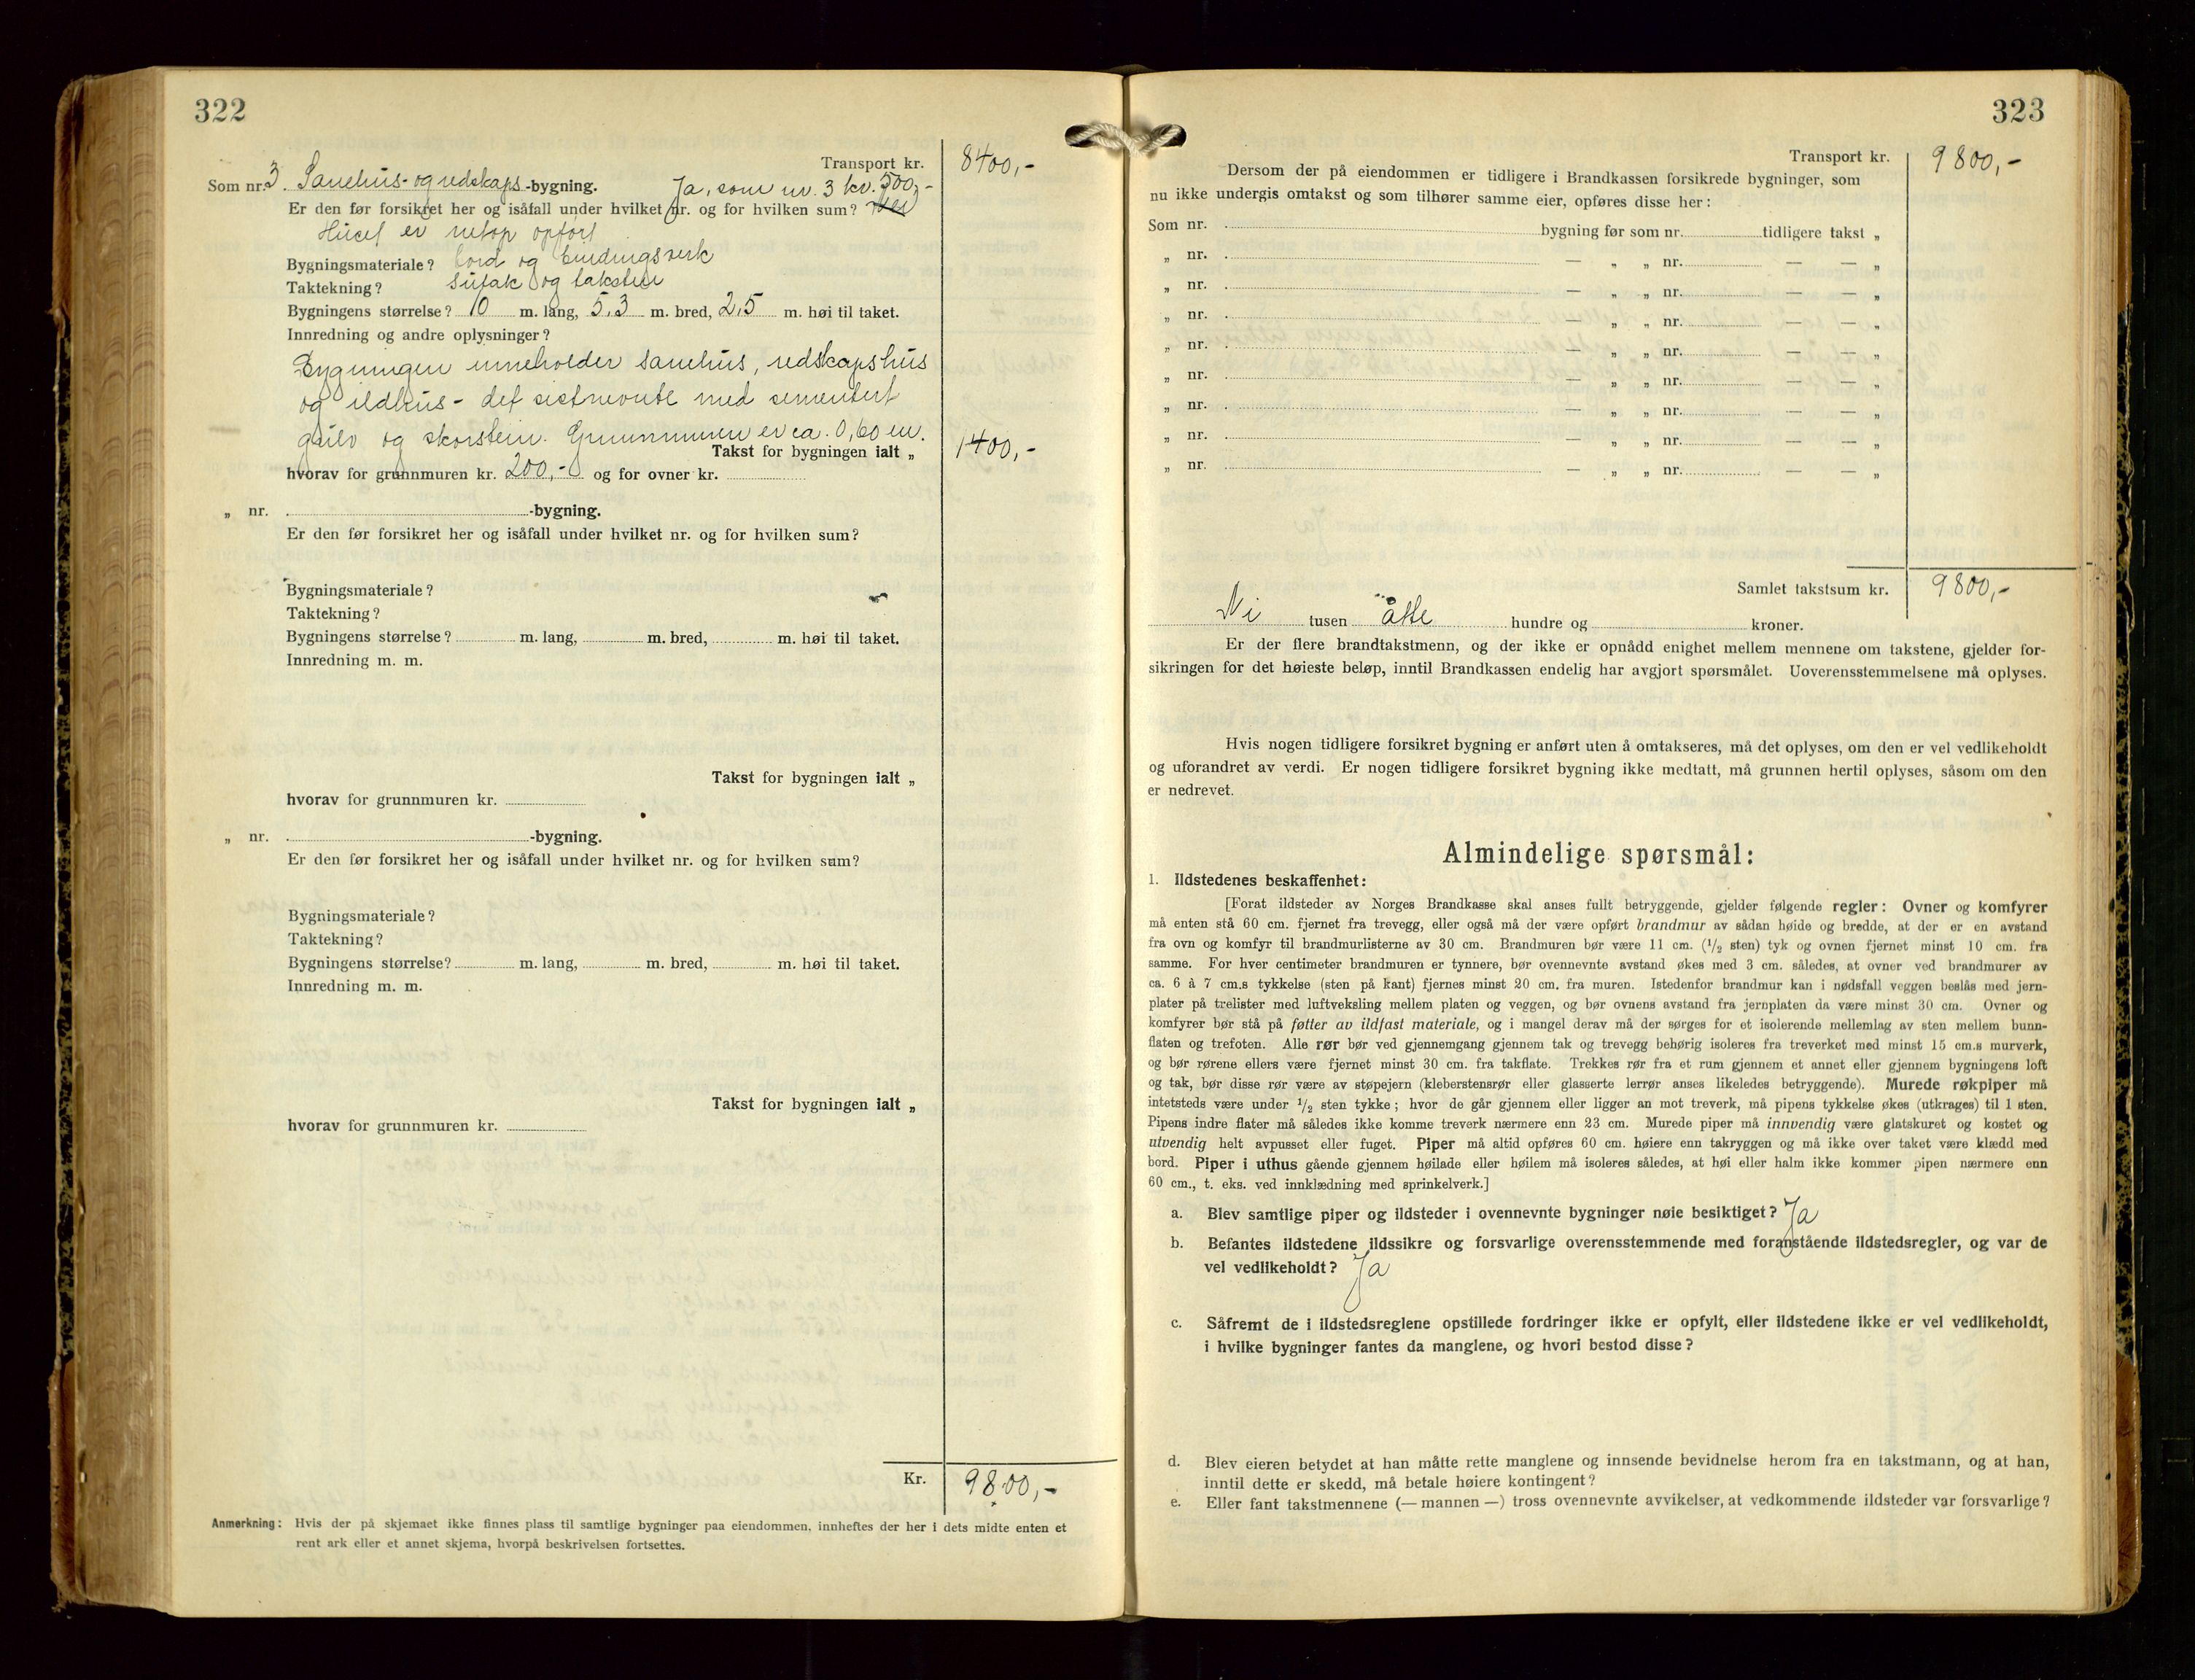 322
Transport kr. 8400,-
Som nr. 3. Sauehus- og redskaps -bygning. Ja, som nr. 3 kr. 500,-
Er den før forsikret her og isåfall under hvilket nr. og for hvilken sum? Nei
Huset er netop opført
Bygningsmateriale? bord og bindingsverk
Taktekning? Sutak og taksten
Bygningens størrelse? 10 m. lang, 5,3 m. bred, 2,5 m. høi til taket.
Innredning og andre oplysninger?
Bygningen inneholder sauehus, redskapshus
og ildhus - det sistnevnte med sementert
gulv og skorstein. Grunnmuren er ca. 0,60 m.
Takst for bygningen ialt „ 1400,-
hvorav for grunnmuren kr. 200,- og for ovner kr.
„ nr. -bygning.
Er den før forsikret her og isåfall under hvilket nr. og for hvilken sum?
Bygningsmateriale?
Taktekning?
Bygningens størrelse? m. lang, m. bred, m. høi til taket.
Innredning m. m.
Takst for bygningen ialt „
hvorav for grunnmuren kr.
„ nr. -bygning.
Er den før forsikret her og isåfall under hvilket nr. og for hvilken sum?
Bygningsmateriale?
Taktekning?
Bygningens størrelse? m. lang, m. bred, m. høi til taket.
Innredning m. m.
Takst for bygningen ialt „
hvorav for grunnmuren kr.
Kr. 9800,-
Anmerkning: Hvis der på skjemaet ikke finnes plass til samtlige bygninger paa eiendommen, innheftes der her i dets midte enten et
rent ark eller et annet skjema, hvorpå beskrivelsen fortsettes.
323
Transport kr. 9800,-
Dersom der på eiendommen er tidligere i Brandkassen forsikrede bygninger, som
nu ikke undergis omtakst og som tilhører samme eier, opføres disse her:
Som nr. bygning før som nr. tidligere takst „
„ nr. — „ „ nr. — — „
„ nr. — „ „ nr. — — „
„ nr. — „ „ nr. — — „
„ nr. — „ „ nr. — — „
„ nr. — „ „ nr. — — „
„ nr. — „ „ nr. — — „
„ nr. — „ „ nr. — — „
„ nr. — „ „ nr. — — „
Samlet takstsum kr. 9800,-
Ni tusen åtte hundre og kroner.
Er der flere brandtakstmenn, og der ikke er opnådd enighet mellem mennene om takstene, gjelder for-
sikringen for det høieste beløp, inntil Brandkassen endelig har avgjort spørsmålet. Uoverensstemmelsene må oplyses.
Hvis nogen tidligere forsikret bygning er anført uten å omtakseres, må det oplyses, om den er vel vedlikeholdt
og uforandret av verdi. Er nogen tidligere forsikret bygning ikke medtatt, må grunnen hertil oplyses, såsom om den
er nedrevet.
Almindelige spørsmål:
1. Ildstedenes beskaffenhet:
[Forat ildsteder av Norges Brandkasse skal anses fullt betryggende, gjelder følgende regler: Ovner og komfyrer
må enten stå 60 cm. fjernet fra trevegg, eller også må der være opført brandmur av sådan høide og bredde, at der er en avstand
fra ovn og komfyr til brandmurlisterne av 30 cm. Brandmuren bør være 11 cm. (1/2 sten) tyk og ovnen fjernet minst 10 cm. fra
samme. For hver centimeter brandmuren er tynnere, bør ovennevnte avstand økes med 3 cm. således, at ovner ved brandmurer av
ca. 6 à 7 cm.s tykkelse (sten på kant) fjernes minst 20 cm. fra muren. Istedenfor brandmur kan i nødsfall veggen beslås med jern-
plater på trelister med luftveksling mellem platen og veggen, og bør ovnens avstand fra jernplaten da være minst 30 cm. Ovner og
komfyrer bør stå på føtter av ildfast materiale, og i mangel derav må der sørges for et isolerende mellemlag av sten mellem bunn-
flaten og trefoten. Alle rør bør ved gjennemgang gjennem tak og trevegg behørig isoleres fra treverket med minst 15 cm.s murverk,
og bør rørene ellers være fjernet minst 30 cm. fra takflate. Trekkes rør fra et rum gjennem et annet eller gjennem bygningens loft
og tak, bør disse rør være av støpejern (kleberstensrør eller glasserte lerrør anses likeledes betryggende). Murede røkpiper må
intetsteds være under 1/2 sten tykke; hvor de går gjennem eller ligger an mot treverk, må pipens tykkelse økes (utkrages) til 1 sten.
Pipens indre flater må således ikke komme treverk nærmere enn 23 cm. Murede piper må innvendig være glatskuret og kostet og
utvendig helt avpusset eller fuget. Piper må altid opføres 60 cm. høiere enn takryggen og må ikke over taket være klædd med
bord. Piper i uthus gående gjennem høilade eller høilem må isoleres således, at høi eller halm ikke kommer pipen nærmere enn
60 cm., t. eks. ved innklædning med sprinkelverk.]
a. Blev samtlige piper og ildsteder i ovennevnte bygninger nøie besiktiget? Ja
b. Befantes ildstedene ildssikre og forsvarlige overensstemmende med foranstående ildstedsregler, og var de
vel vedlikeholdt? Ja
c. Såfremt de i ildstedsreglene opstillede fordringer ikke er opfylt, eller ildstedene ikke er vel vedlikeholdt,
i hvilke bygninger fantes da manglene, og hvori bestod disse?
d. Blev eieren betydet at han måtte rette manglene og innsende bevidnelse herom fra en takstmann, og at han,
inntil dette er skedd, må betale høiere kontingent?
e. Eller fant takstmennene (— mannen —) tross ovennevnte avvikelser, at vedkommende ildsteder var forsvarlige?